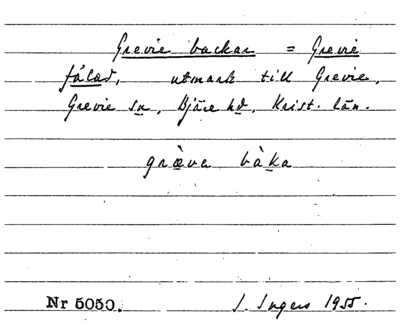 Grevie backar = Grevie
fälad, utmark till Grevie,
Grevie sn, Bjäre hd, Krist. län.
græ̀va bàka
Nr 5050. I. Ingers 1955.